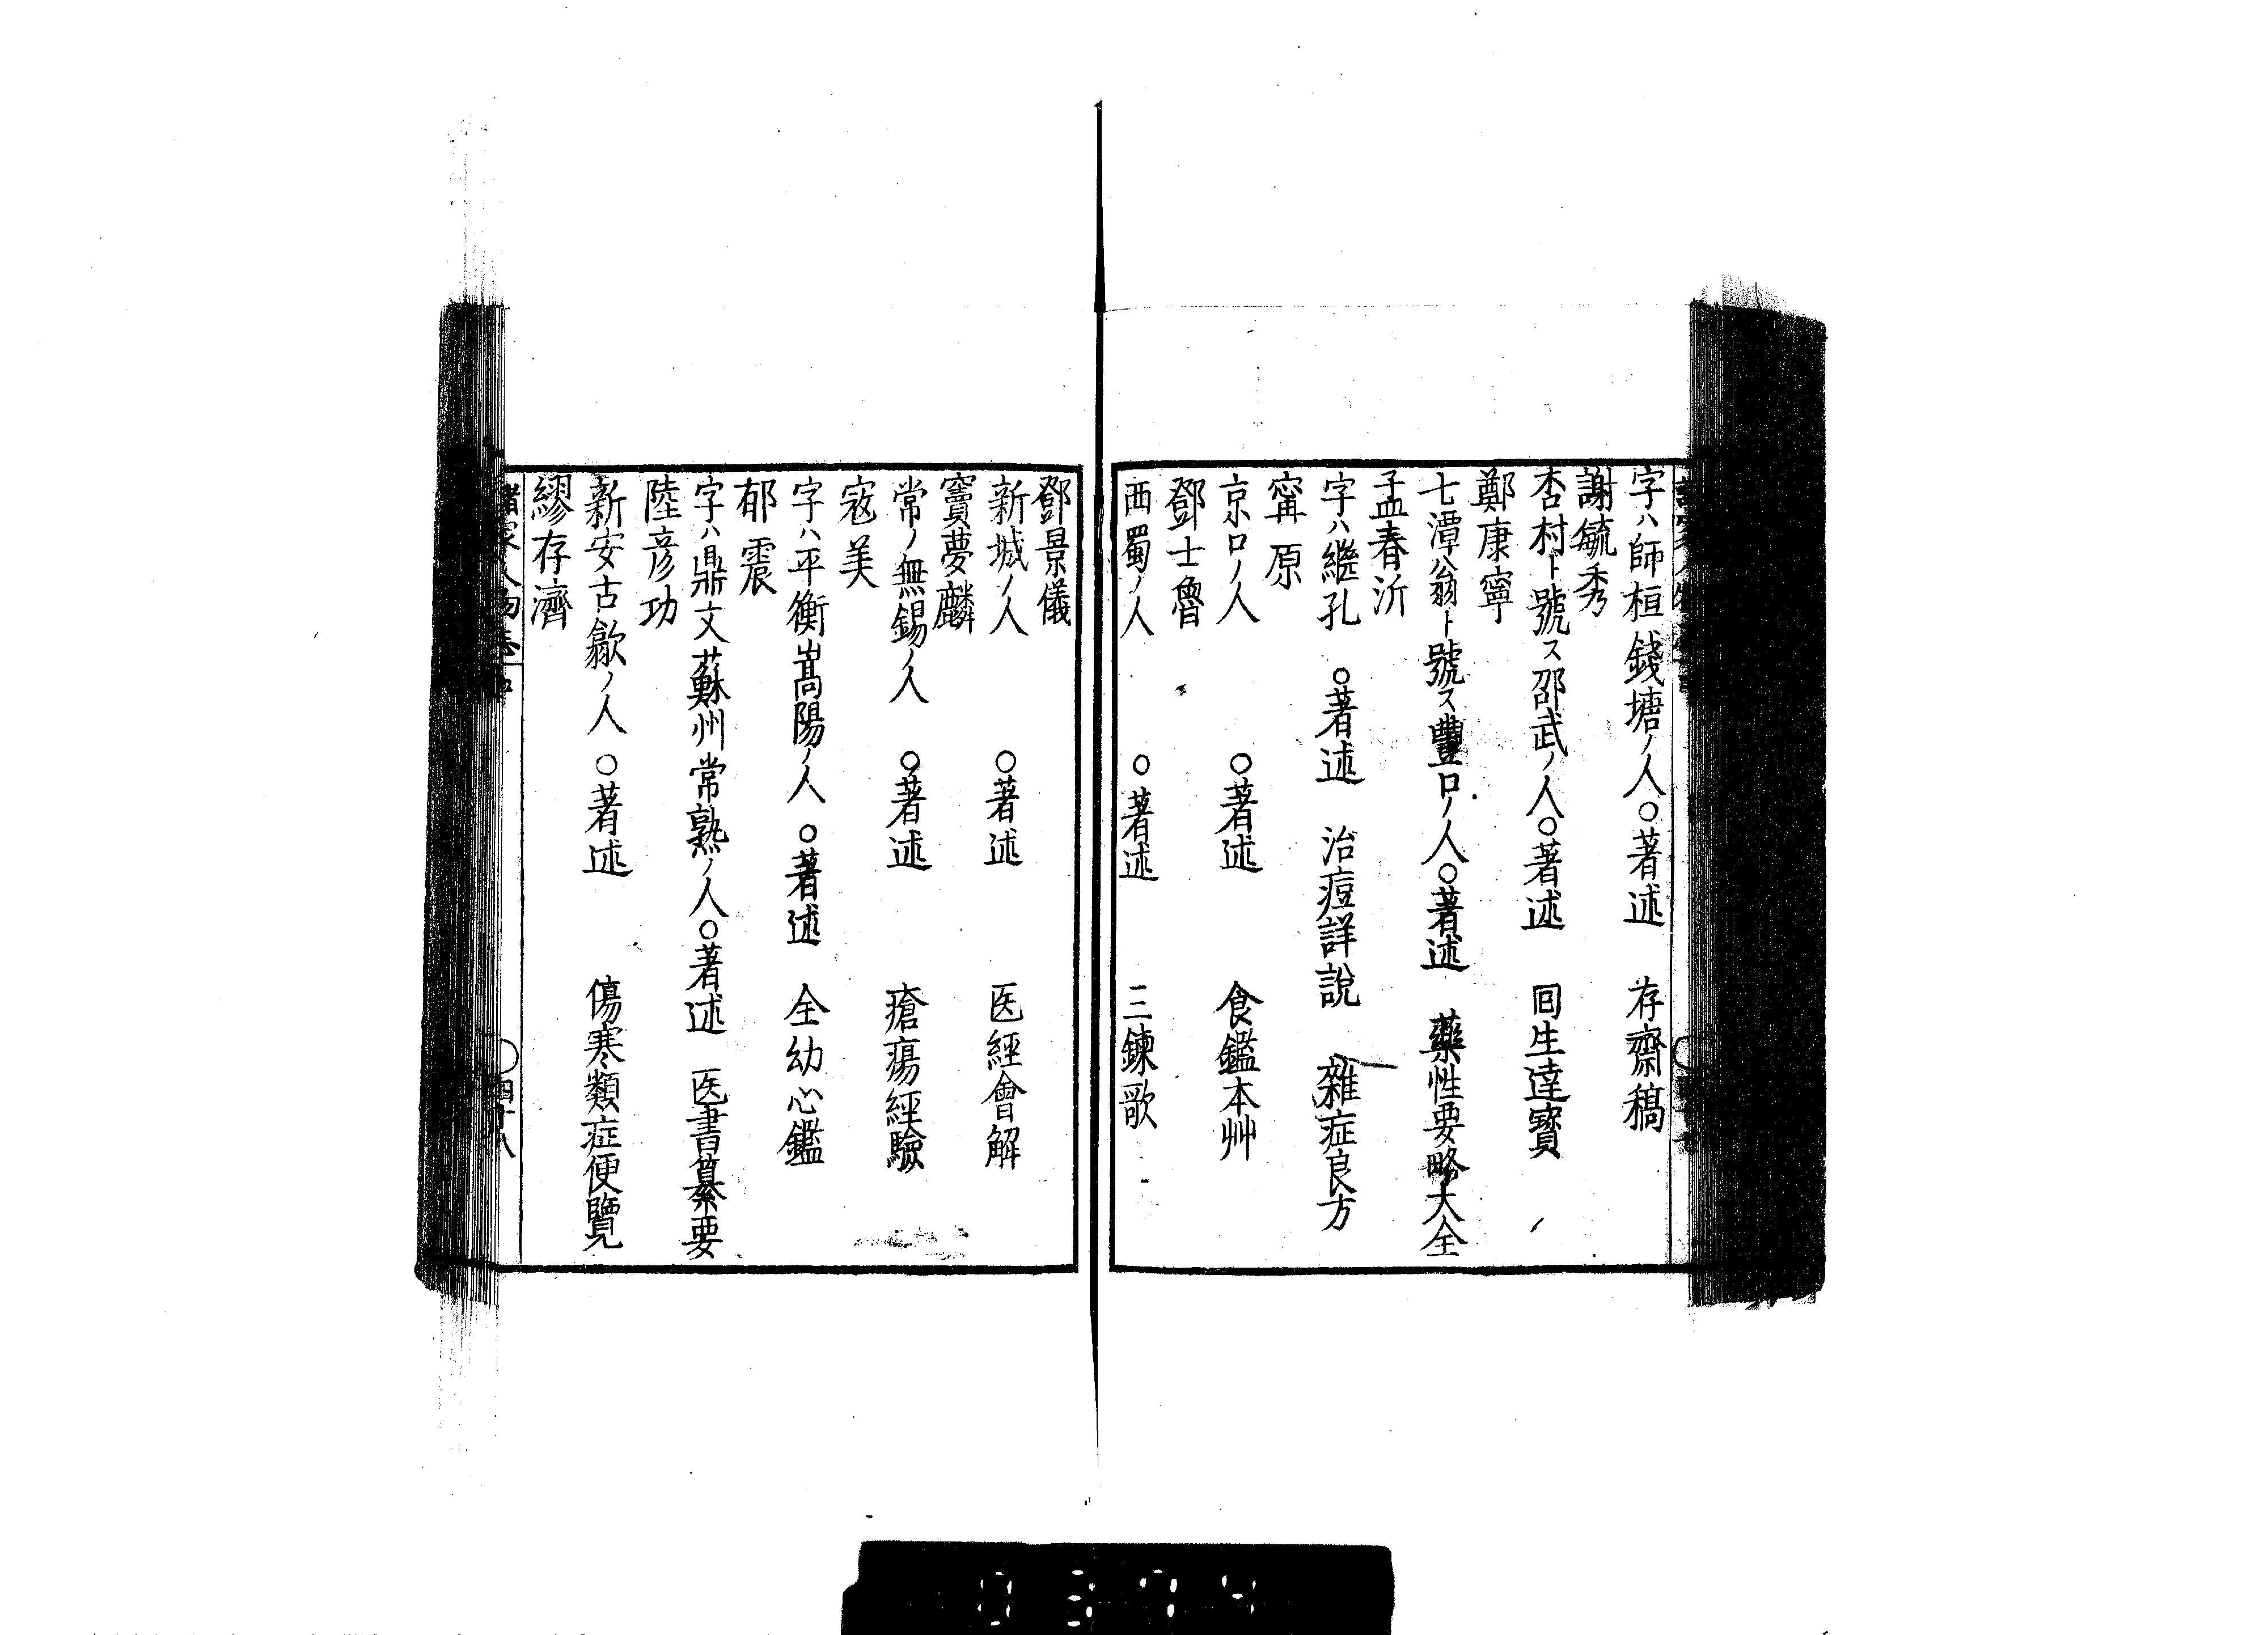 字ハ師桓錢塘ノ人○著述 存齋稿
謝毓秀
杏村ト號ス邵武ノ人○著述 囘生達寳
鄭康寧
七潭翁ト號ス豐口ノ人○著述 藥性要略大全
孟春沂
字ハ繼孔 ○著述 治痘詳說 雜症良方
甯原
京口ノ人 ○著述 食鑑本艸
鄧士魯
西蜀ノ人 ○著述 三鍊歌
鄧景儀
新城ノ人 ○著述 医經會解
竇夢麟
常ノ無錫ノ人 ○著述 瘡瘍經驗
寇美
字ハ平衡嵩陽ノ人 ○著述 全幼心鑑
郁震
字ハ鼎文蘇州常熟ノ人○著述 医書纂要
陸彦功
新安古歙ノ人 ○著述 傷寒類症便覽
繆存濟
諸家人物志 ○四十八
0374